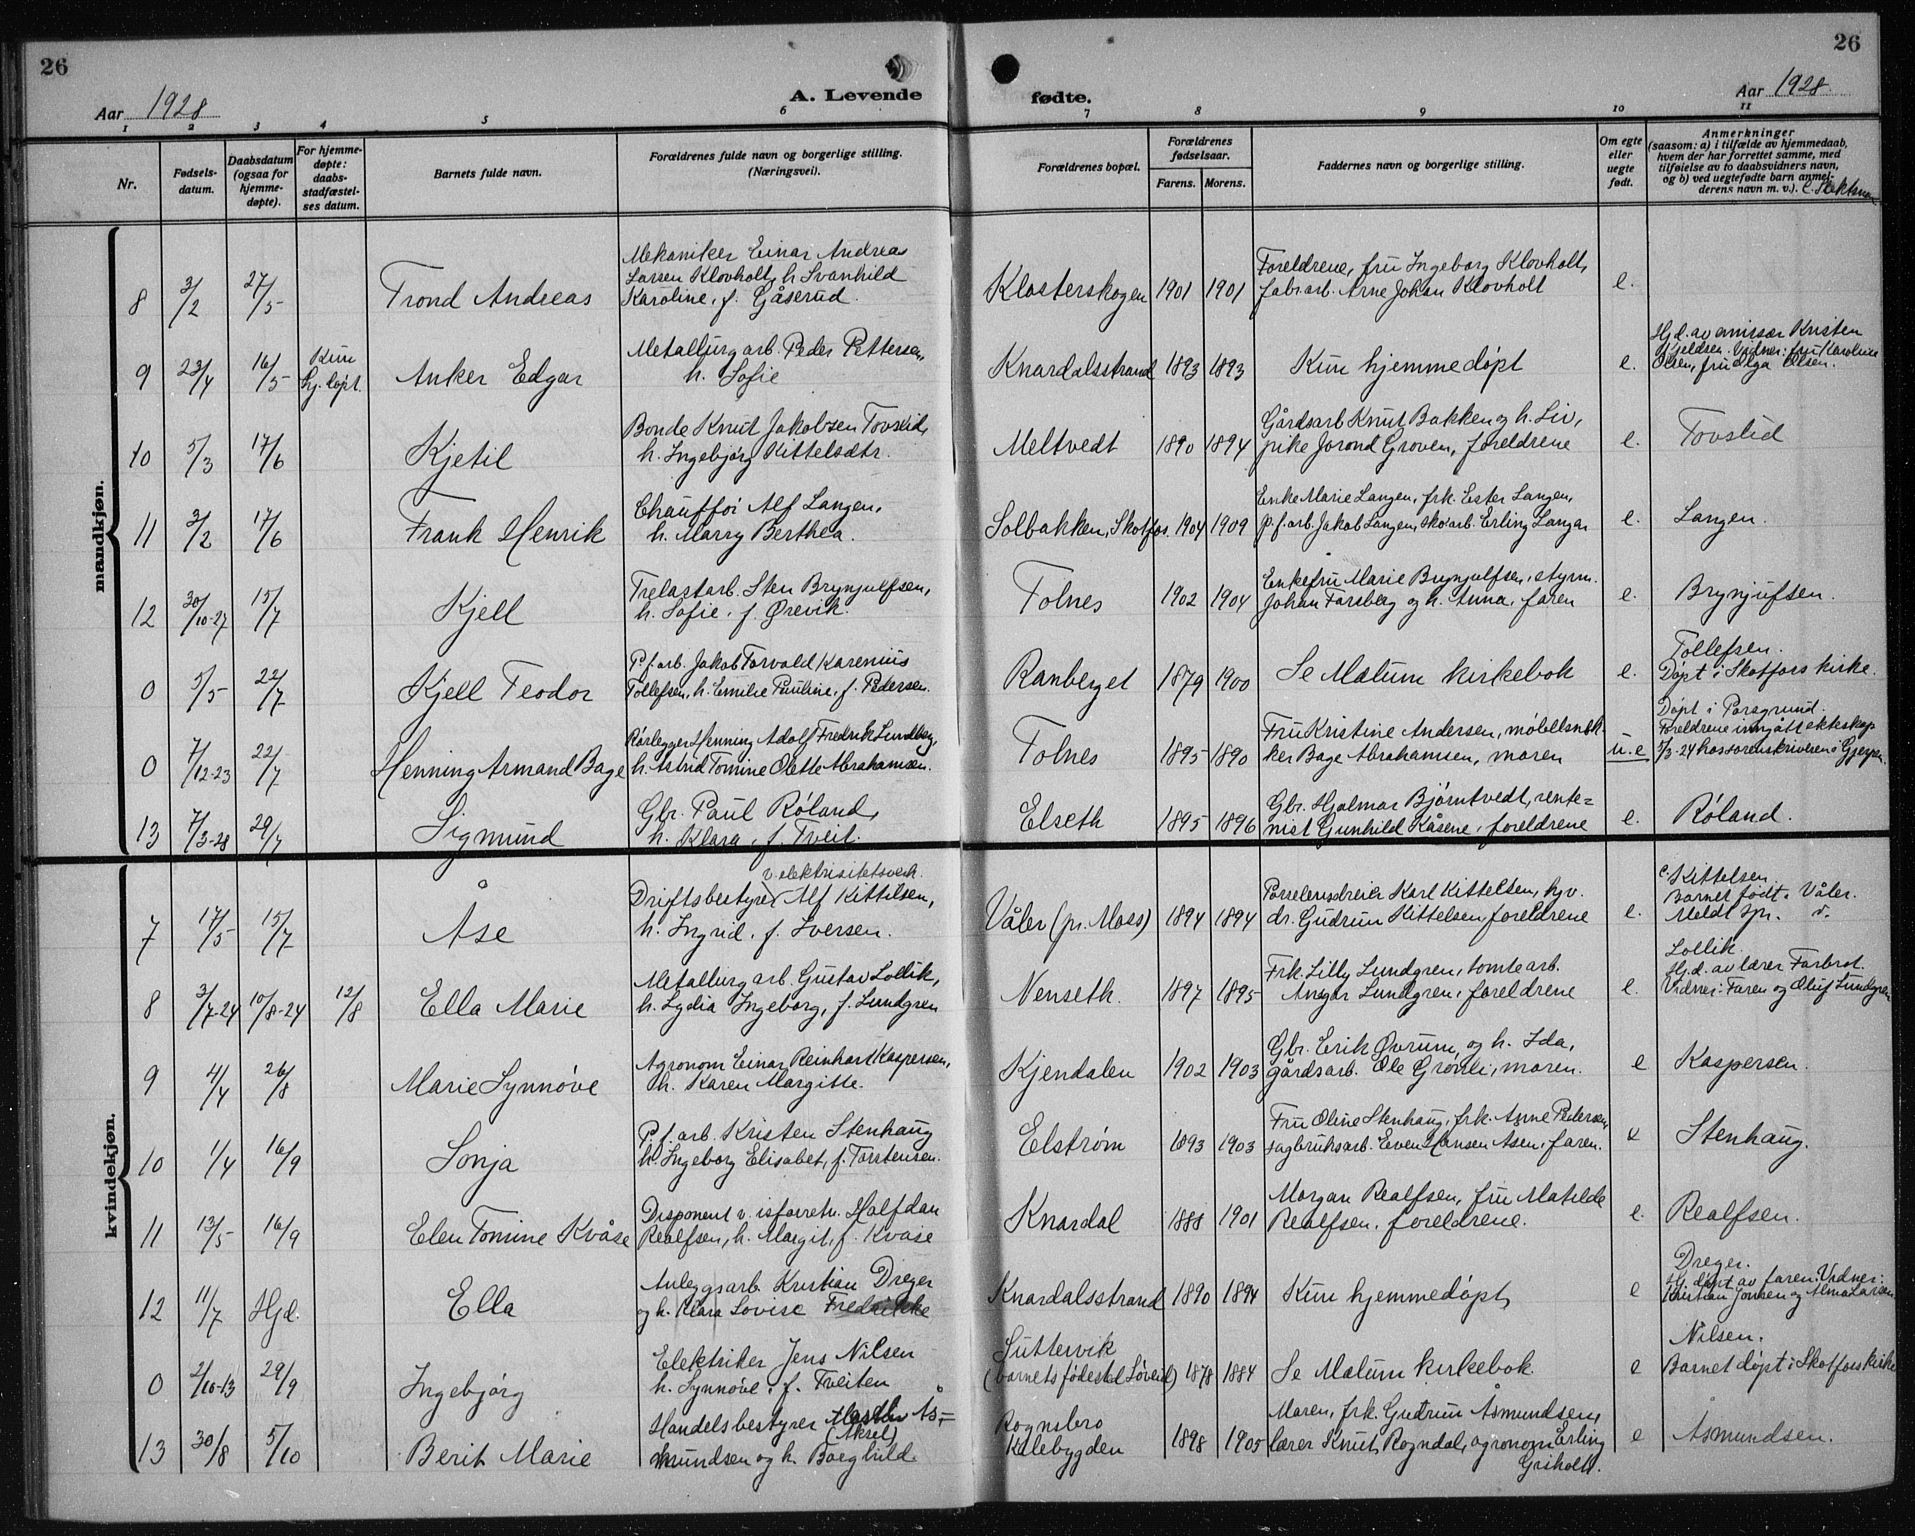 26
26
Aar 1928
A. Levende
fødte.
Aar 1928.
1 2 3 4 5 6 7 8 9 10 11
Nr.
Fødsels-
datum.
Daabsdatum
(ogsaa for
hjemme-
døpte).
For hjemme-
døpte:
daabs-
stadfæstel-
ses datum.
Barnets fulde navn.
Forældrenes fulde navn og borgerlige stilling.
(Næringsvei).
Forældrenes bopæl.
Forældrenes
fødselsaar.
Farens. Morens.
Faddernes navn og borgerlige stilling.
Om egte
eller
uegte
født.
Anmerkninger
(saasom: a) i tilfælde av hjemmedaab,
hvem der har forrettet samme, med
tilføielse av to daabsvidners navn,
og b) ved uegtefødte barn anmel-
derens navn m. v.). c. Slektsnavn
mandkjøn.
Mekaniker Einar Andreas
Larsen Klovholt, h. Svanhild
Karoline, f. Gåserud.
8 3/2 27/5 Trond Andreas
Klosterskogen 1901 1901
Foreldrene, fru Ingeborg Klovholt,
fabr.arb. Arne Johan Klovholt
e.
Metallurg arb. Peder Pettersen,
h. Sofie
9 23/4 16/5 Kun
hj. døpt. Anker Edgar
Knardalsstrand 1893 1893 Kun hjemmedøpt e.
Hj.d. av emissær Kristen
Kjeldsen. Vidner: fru Karoline
Olsen, fru Olga Olsen.
Bonde Knut Jakobsen Tovslid,
h. Ingebjørg Kittelsdtr.
10 5/3 17/6 Kjetil
Meltvedt 1890 1894
Gårdsarb Knut Bakken og h. Liv,
pike Jorond Groven, foreldrene
e. Tovslid
Chaufför Alf Langen,
h. Marry Berthea.
11 3/2 17/6 Frank Henrik
Solbakken, Skotfos. 1904 1909
Enke Marie Langen, frk. Ester Langen,
p.f.arb. Jakob Langen, skoarb. Erling Langen
e. Langen.
Trelastarb. Sten Brynjulfsen,
h. Sofie, f. Ørevik.
12 30/10-27 15/7 Kjell
Tolnes 1902 1904
Enkefru Marie Brynjulfsen, styrm.
Johan Farsberg og h. Anna, faren
e. Brynjulfsen.
P.f.arb. Jakob Torvald Karenius
Tollefsen, h. Emilie Pauline, f. Pedersen.
0 5/5 22/7 Kjell Teodor
Ranberget 1879 1900 Se Mælum kirkebok e.
Tollefsen.
Døpt i Skotfoss kirke.
Rørlegger Henning Adolf Fredrik Lundberg,
h. Astrid Tomine Olette Abrahamsen.
0 7/12-23 22/7 Henning Armand Bage
Tolnes 1895 1890
Fru Kristine Andersen, møbelsnek-
ker Bage Abrahamsen, moren
u.e
Døpt i Porsgrund.
Foreldrene inngått ekteskap
/3-24 hos sorenskriveren i Gjerpen.
Gbr. Paul Røland,
h. Klara, f. Tveit.
13 7/3-28 29/7 Sigmund
Elseth 1895 1896
Gbr. Hjalmar Bjørntvedt, rente=
nist Gunhild Kåsene, foreldrene
e. Røland.
kvindekjøn.
v. elektrisitetsverk.
Driftsbestyrer Alf Kittelsen,
h. Ingrid, f. Iversen.
7 17/5 15/7 Åse
Våler (pr. Moss) 1894 1894
Porselensdreier Karl Kittelsen, hjv.
dr. Gudrun Kittelsen, foreldrene
e.
c. Kittelsen.
Barnet født i Våler.
Meldt spr. d.
Metallurg arb. Gustav Lollik,
h. Lydia Ingeborg, f. Lundgren
8 3/7-24 10/8-24 12/8 Ella Marie
Nenseth. 1897 1895
Frk. Lilly Lundgren, tomtearb.
Ansgar Lundgren, foreldrene
e.
Lollik.
Hj.d. av lærer Farbrot.
Vidner: Faren og Oluf Lundgren
Agronom Einar Reinhart Kaspersen,
h. Karen Margitte.
9 4/4 26/8 Marie Synnøve
Kjendalen 1902 1903
Gbr. Erik Øvrum og h. Ida,
gårdsarb. Ole Grønli, moren.
e Kaspersen.
P.f. arb. Kristen Stenhaug
h. Ingeborg Elisabet, f. Torstensen.
10 1/4 16/9 Sonja
Elstrøm 1893 1903
Fru Oline Stenhaug, frk. Anne Pedersen
sagbruksarb. Even Hansen Åsen, faren.
e Stenhaug.
Disponent v. isforretn. Halfdan
Realfsen, h. Margit, f. Kvåse
11 13/5 16/9 Elen Tomine Kvåse
Knardal 1888 1901
Morgan Realfsen, fru Matilde
Realfsen, foreldrene.
e. Realfsen.
Anleggsarb. Kristian Dreger
og h. Klara Lovise Fredrikke
12 11/7 Hjd. Ella
Knardalsstrand 1890 1894 Kun hjemmedøpt, e
Dreger.
Hj. døpt av faren. Vidner:
Kristian Jonsen og Alma Larsen
Elektriker Jens Nilsen
h. Synnøve, f. Tveiten
0 2/10-13 29/9 Ingebjørg
Suttervik
(barnets fødested Løveid) 1878 1884 Se Mælum kirkebok. e
Nilsen.
Barnet døpt i Skotfoss kirke
Handelsbestyrer Ås-
(Aksel)
mundsen og h. Borghild.
13 30/8 5/10 Berit Marie
Rognsbro
Kilebygden 1898 1905
Moren, frk. Gudrun Åsmundsen,
lærer Knut Rogndal, agronom Erling
Griholt.
e Åsmundsen.